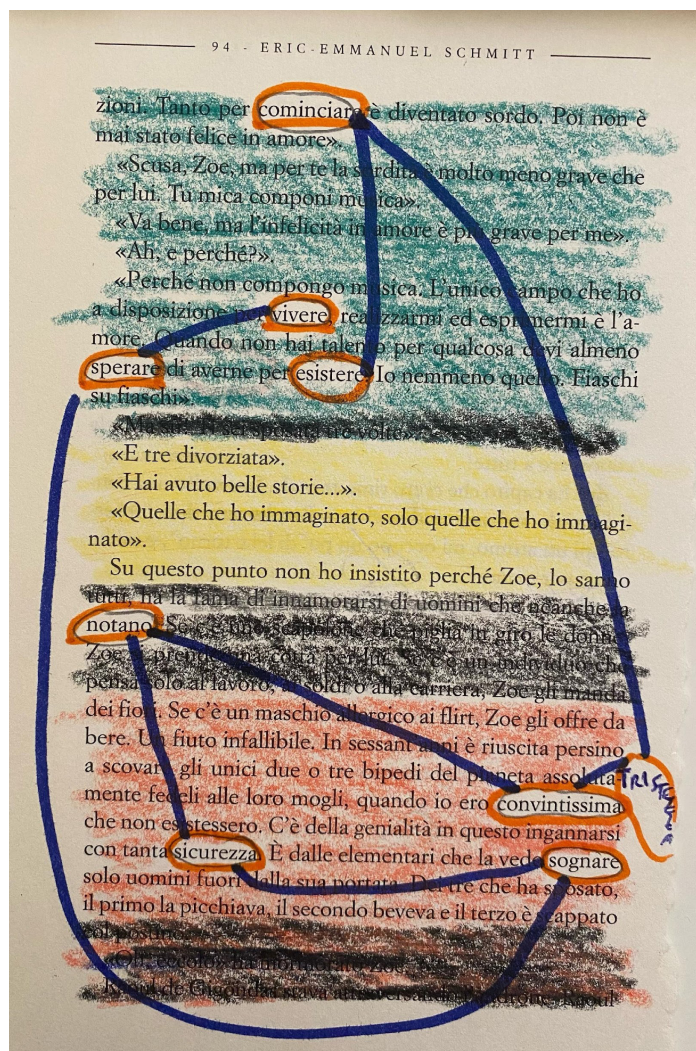 94 - ERIC-EMMANUEL SCHMITT
zioni. Tanto per cominciare è diventato sordo. Poi non è
mai stato felice in amore».
«Scusa, Zoe, ma per te la sordità è molto meno grave che
per lui. Tu mica componi musica».
«Va bene, ma l'infelicità in amore è più grave per me».
«Ah, e perché?».
«Perché non compongo musica. L'unico campo che ho
a disposizione per vivere, realizzarmi ed esprimermi è l'a-
more. Quando non hai talento per qualcosa devi almeno
sperare di averne per esistere. Io nemmeno quello. Fiaschi
su fiaschi».
«Ma sì. Ti sei sposata tre volte».
«E tre divorziata».
«Hai avuto belle storie...».
«Quelle che ho immaginato, solo quelle che ho immagi-
nato».
Su questo punto non ho insistito perché Zoe, lo sanno
tutti, ha la fama di innamorarsi di uomini che neanche la
notano. Se c'è uno scapolone che piglia in giro le donne,
Zoe si prende una cotta per lui. Se c'è un individuo che
pensa solo al lavoro, ai soldi o alla carriera, Zoe gli manda
dei fiori. Se c'è un maschio allergico ai flirt, Zoe gli offre da
bere. Un fiuto infallibile. In sessant'anni è riuscita persino
a scovare gli unici due o tre bipedi del pianeta assoluta-
mente fedeli alle loro mogli, quando io ero convintissima
che non esistessero. C'è della genialità in questo ingannarsi
con tanta sicurezza. È dalle elementari che la vedo sognare
solo uomini fuori dalla sua portata. Dei tre che ha sposato,
il primo la picchiava, il secondo beveva e il terzo è scappato
col postino.
«Oh, eccolo» ha mormorato Zoe.
Raoul de Gigondas stava attraversando